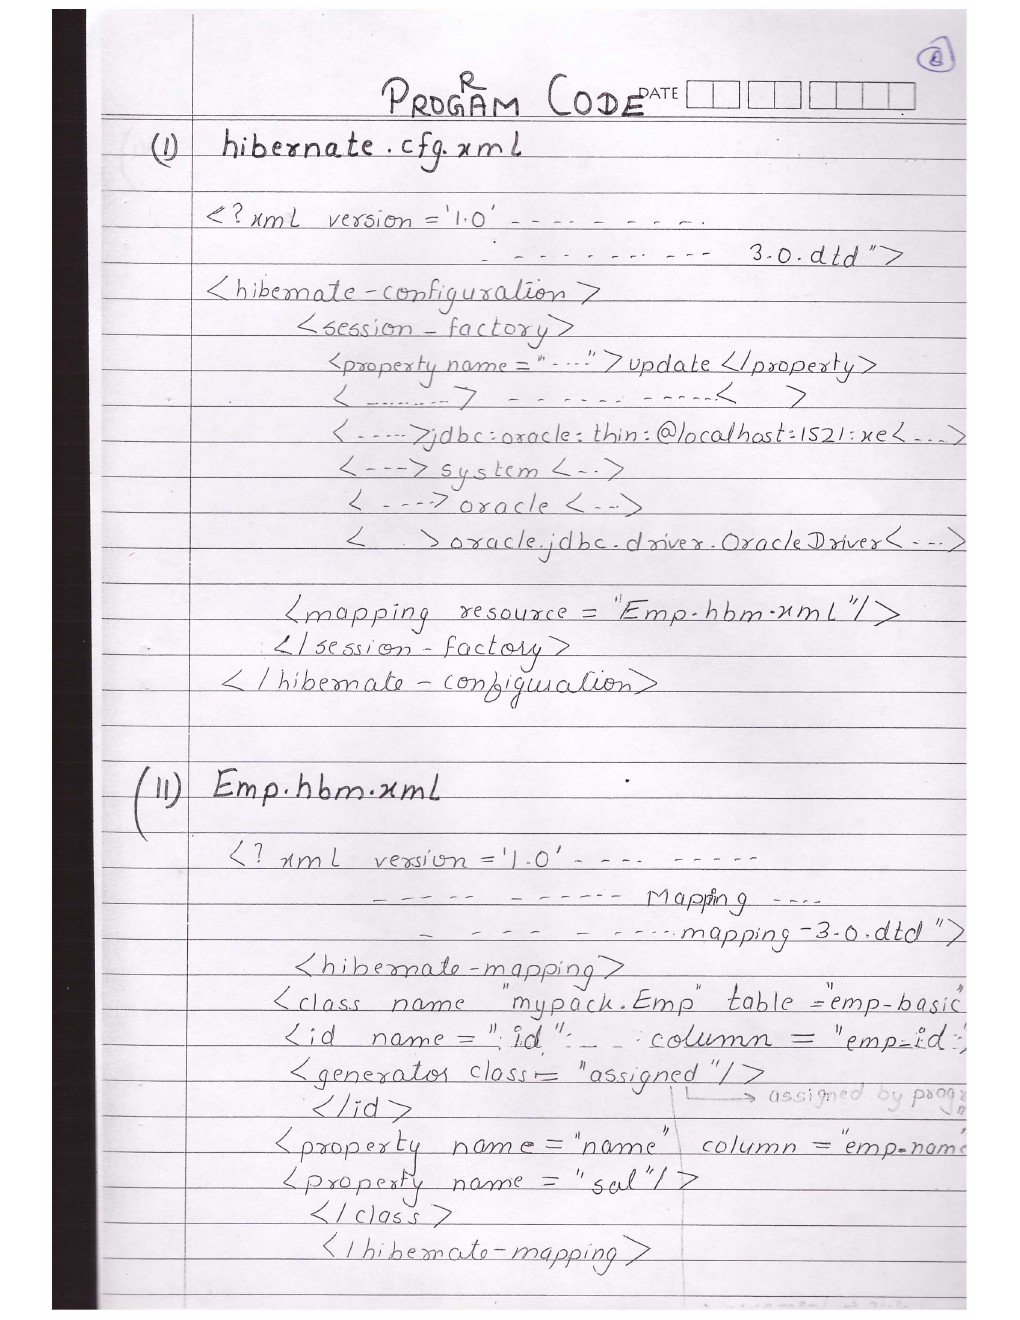 PROGRAM CODE DATE
(I) hibernate.cfg.xml
<?xml version ='1.0' - - - - - - - -.
- - - - - - - - - - 3.0.dtd">
<hibernate-configuration>
<session-factory>
<property name = "----">update </property>
< ........> - - - - - - - - - - -< >
<----->jdbc:oracle:thin:@localhost:1521:xe<---->
<---> system <-->
<----> oracle <--->
< > oracle.jdbc.driver.OracleDriver<---->
<mapping resource = "Emp.hbm.xml"/>
</session-factory>
</hibernate-configuration>
(II) Emp.hbm.xml
<?xml version ='1.0' - - - - - - - - -
- - - - - - - - - - - Mapping ----
- - - - - - - - - - mapping-3.0.dtd">
<hibernate-mapping>
<class name "mypack.Emp" table ="emp-basic"
<id name = "id" - - - column = "emp-id"
<generator class = "assigned"/>
assigned by
</id>
<property name = "name" column = "emp-name
<property name = "sal"/>
</class>
</hibernate-mapping>